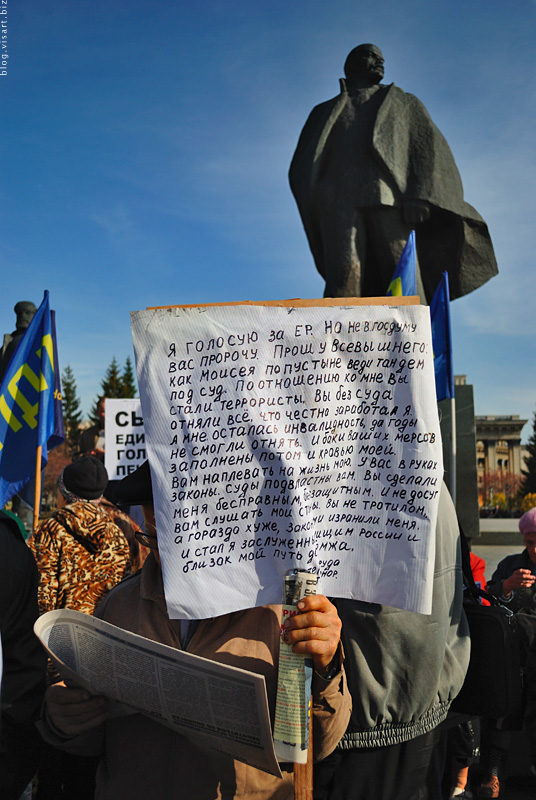 blog.visart.biz
Я голосую за ЕР. Но не в госдуму
вас пророчу. Прошу у всевышнего:
как Моисея по пустыне веди тандем
под суд. По отношению ко мне вы
стали террористы. Вы без суда
отняли всё, что честно заработал я.
А мне осталась инвалидность, да годы
не смогли отнять. И баки ваших мерсов
заполнены потом и кровью моей.
Вам наплевать на жизнь мою. У вас в руках
законы. Суды подвластны вам. Вы сделали
меня бесправным, беззащитным. И не досуг
вам слушать мои стоны. Вы не тротилом,
а гораздо хуже, законами изранили меня.
и стал я заслуженным нищим России и
близок мой путь до
труда
СЫ
ЕДИ
ГОЛ
ПЕ
ЛДП